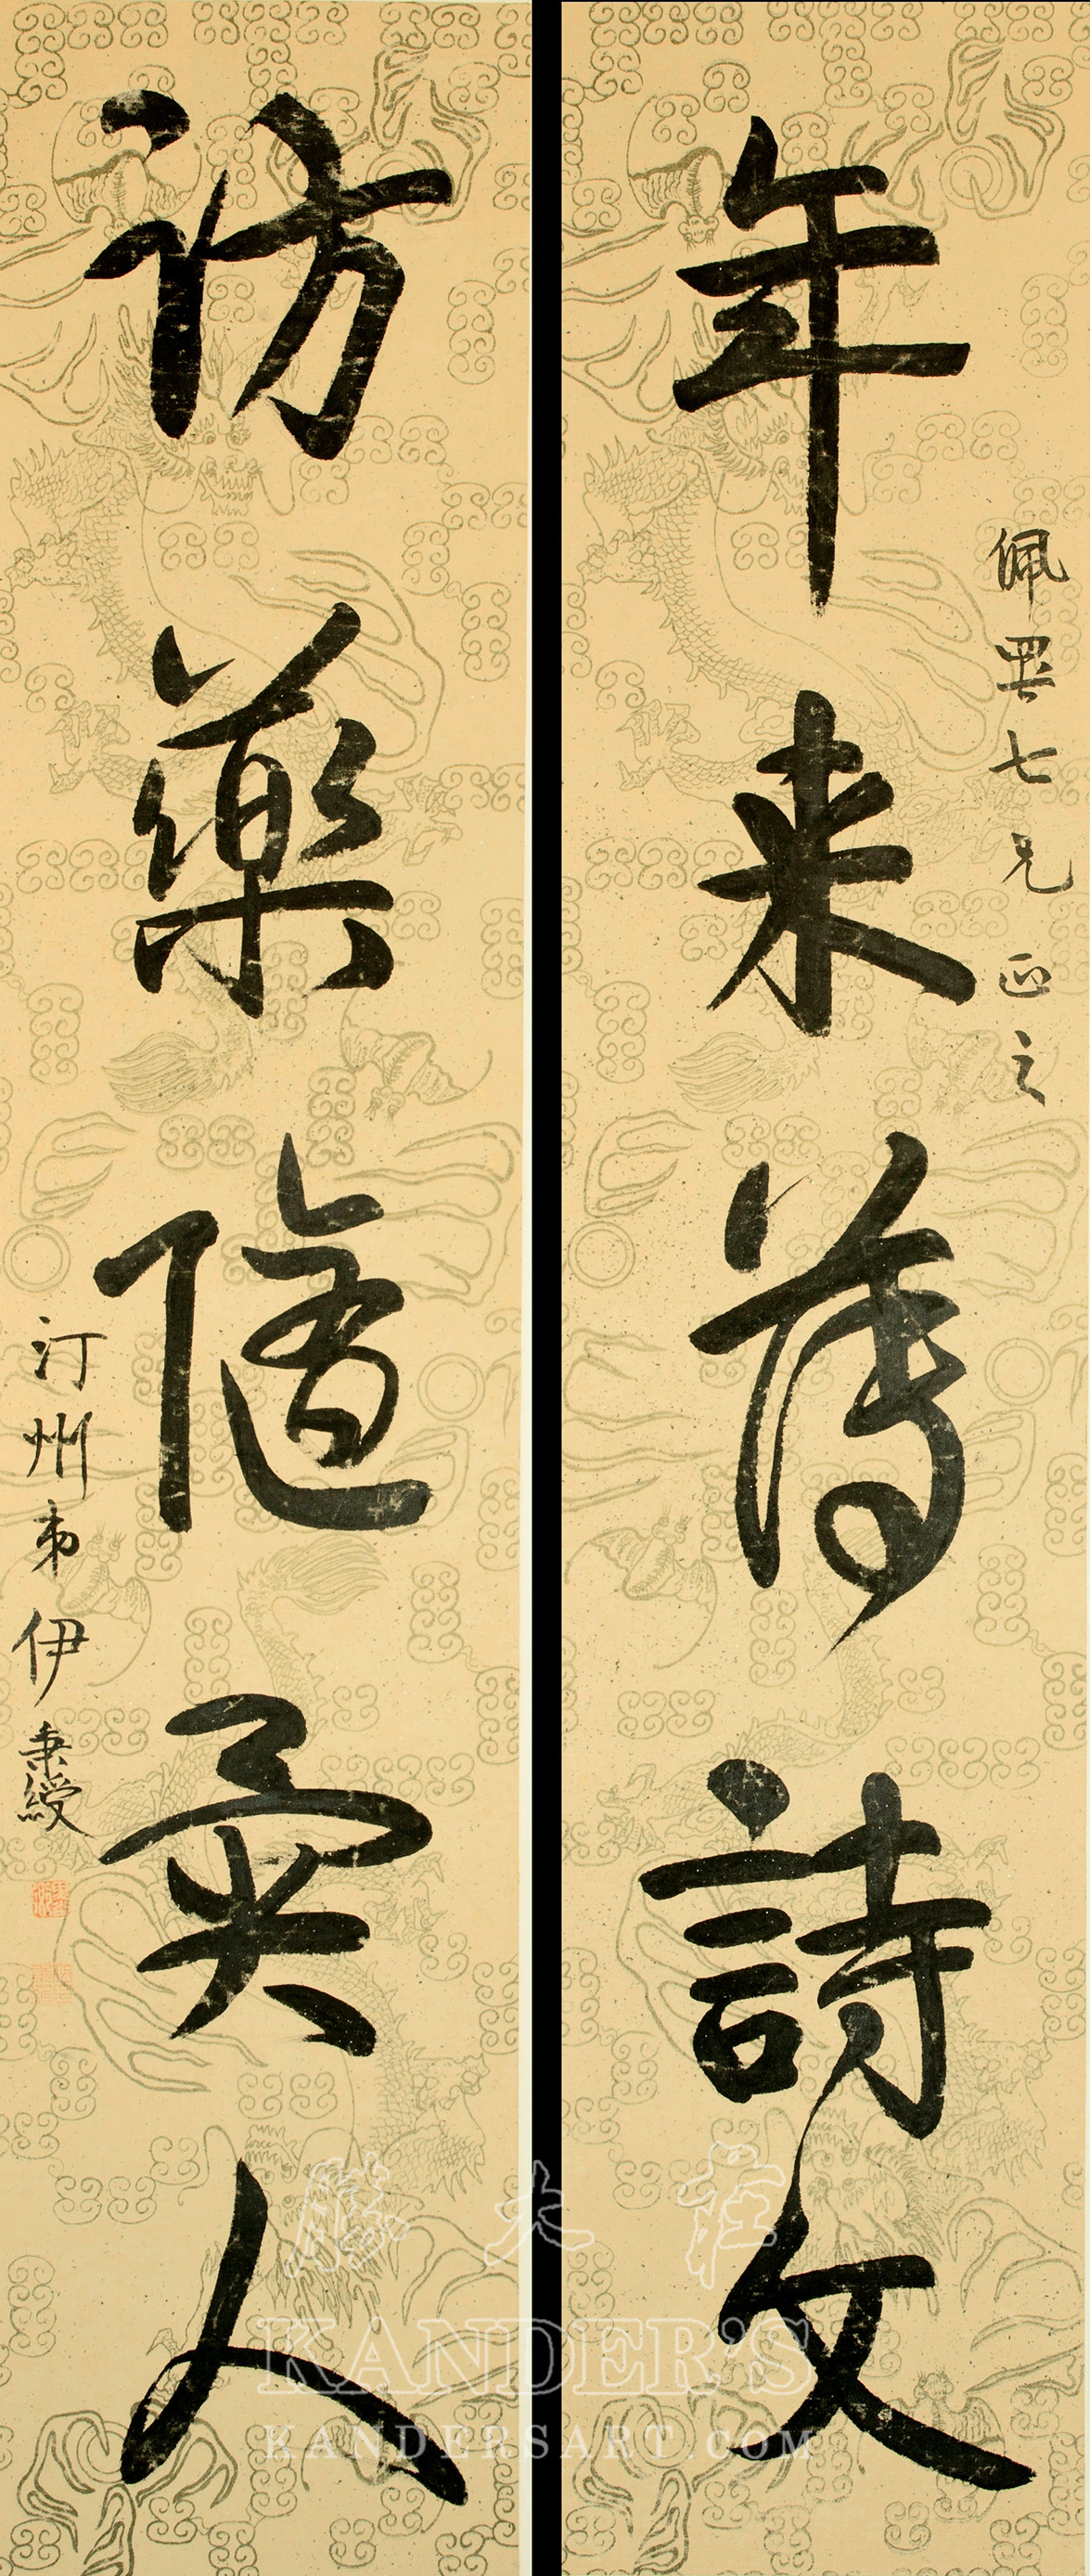 佩 七兄 正之
年来薄詩文
訪藥隨 人
汀州弟伊秉綬
勝大莊
KANDER'S
KANDERSART.COM